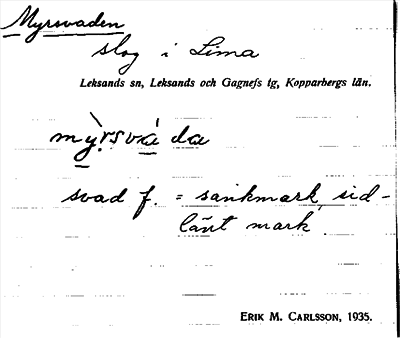 Myrsvaden
slog i Lima
Leksands sn, Leksands och Gagnefs tg, Kopparbergs län.
mỳrsvada
svad f. = sankmark, sid-
länt mark
ERIK M. CARLSSON, 1935.